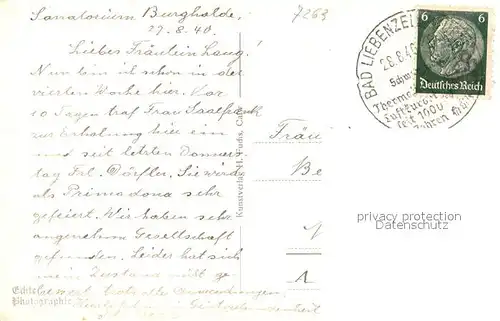 Sanatorium Burghalde,
27.8.40.
7263
Liebes Fräulein Lang!
Nun bin ich schon in der
vierten Woche hier. Vor
10 Tagen traf Frau
zur Erholung hier ein
und seit letzten Donners-
tag Frl. Dörfler. Sie wird
als Primadona sehr
gefeiert. Wir haben sehr
angenehme Gesellschaft
gefunden. Leider hat sich
mein Zustand nicht ge
bessert trotz aller Anwendungen.
Editel
Photographie
Kunstverlag
BAD LIEBENZELL
28.8.40
Luftkurort
seit 1600
Jahren
6 6
Deutsches Reich
Fräu
Be
privacy protection
DATENSCHUTZ